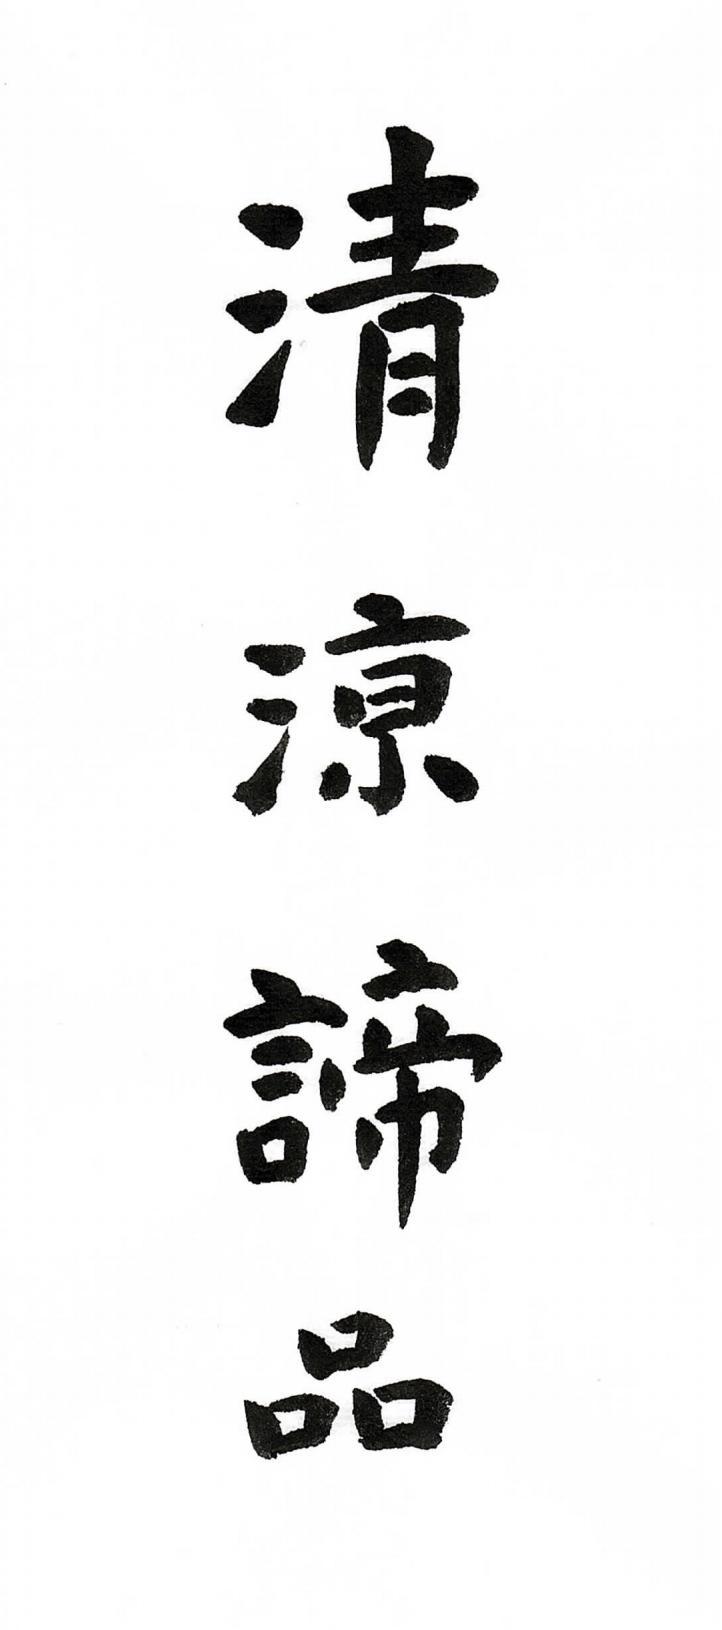 清涼諦品